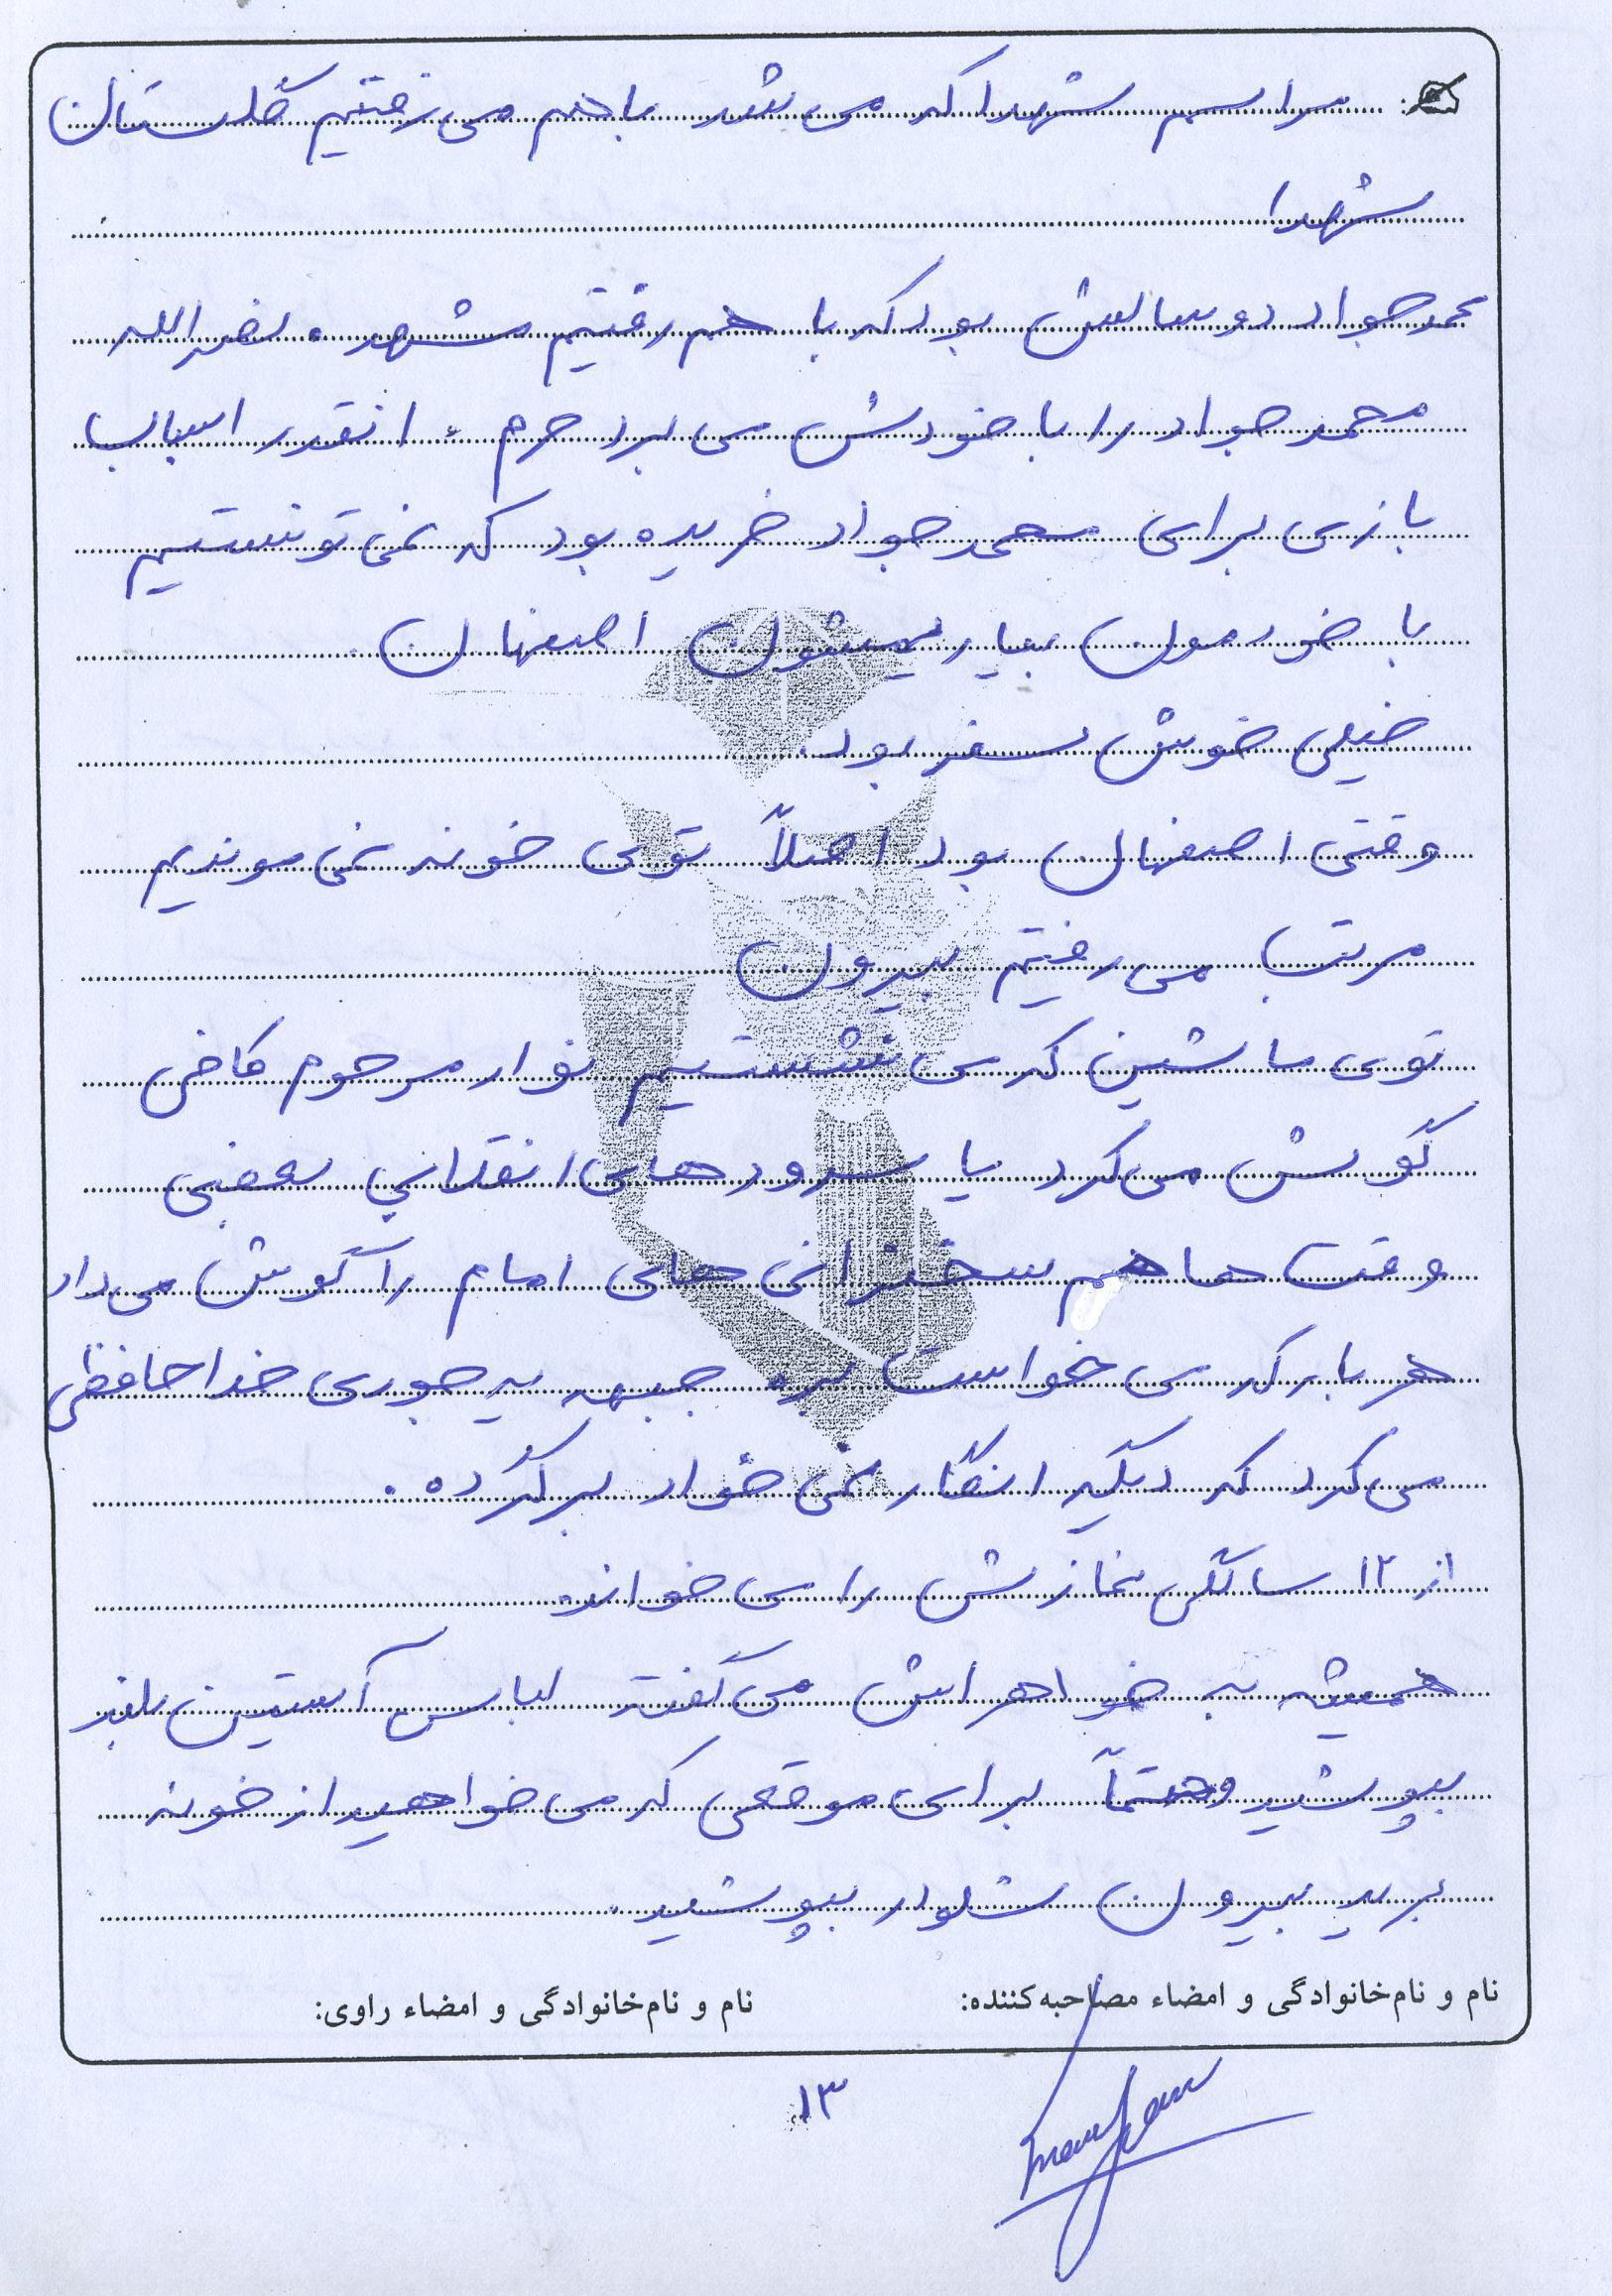 مراسم شهدا که می شد باهم می رفتیم گلستان
شهدا
محمدجواد دو سالش بود که با هم رفتیم مشهد، نصراله
محمدجواد را با خودش می برد حرم. انقدر اسباب
بازی برای محمدجواد خریده بود که نمی تونستیم
با خودمون بیاریمشون اصفهان.
خیلی خوش سفر بود.
وقتی اصفهان بود اصلاً توی خونه نمی موندیم
مرتب می رفتیم بیرون
توی ماشین که می نشستیم نوار مرحوم کافی
گوش می کرد یا سرودهای انقلابی بعضی
وقت ها هم سخنرانی های امام را گوش می داد
هر بار که می خواست بره جبهه یه جوری خداحافظی
می کرد که دیگه انگار نمی خواد برگرده.
از ۱۲ سالگی نمازش را می خواند
همیشه به خواهراش می گفت لباس آستین بلند
بپوشید و حتماً برای موقعی که می خواهید از خونه
برید بیرون شلوار بپوشید.
نام و نام‌خانوادگی و امضاء مصاحبه‌کننده:
نام و نام‌خانوادگی و امضاء راوی:
۱۳